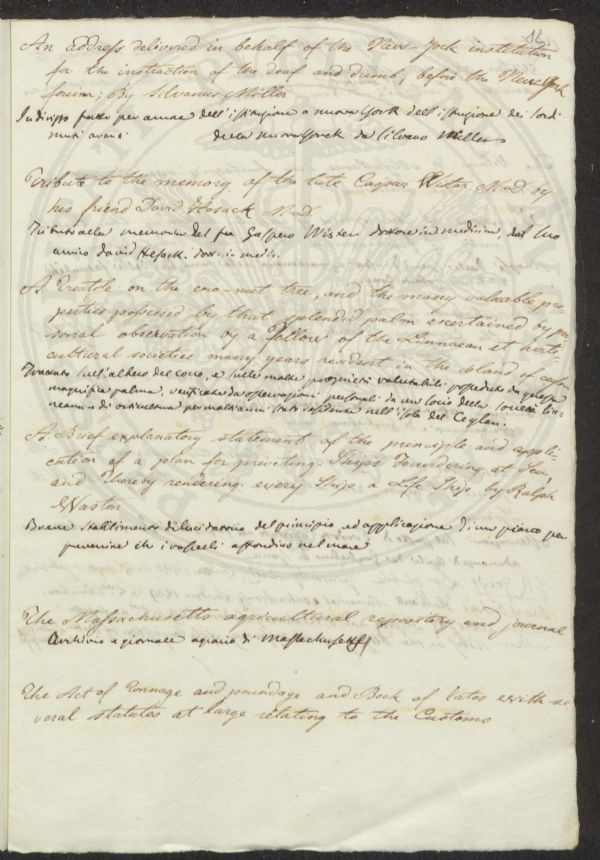 12.
An address delivered in behalf of the New-York institution
for the instruction of the deaf and dumb, before the New York
forum; By Silvanus Miller
Indirizzo fatto per amore dell'istituzione a nuova York dell'istruzione dei sordi
muti avanti della nuova York da Silvano Miller
Tribute to the memory of the late Caspar Wistar M.D. by
his friend David Hosack M.D.
Tributo alla memoria del fu Gaspero Wisten dottore in medicina, dal suo
amico David Hosack, dott. in med.
A Treatise on the coco-nut tree, and the many valuable pro-
perties possessed by that splendid palm ascertained by per-
sonal observation by a Fellow of the Linnaean et horti-
cultural societies many years resident in the island of ceylon
Trattato sull'albero del cocco, e sulle molte proprietà valutabili possedute da questa
magnifica palma, verificate da osservazioni personali da un socio della società lin-
neana e di orticultura per molti anni stato residente nell'isola del Ceylan.
A Brief explanatory statement of the principle and appli-
cation of a plan for preventing Ships Foundering at Sea,
and thereby rendering every Ship a Life Ship by Ralph
Watson
Breve stabilimento dilucidatorio del principio, ed applicazione d'un piano per
prevenire che i vascelli affondino nel mare
The Massachusetts agricultural repository and journal
Archivio a giornale agrario di Massachusetts
The Act of Tonnage and poundage and Book of rates with se-
veral statutes at large relating to the Customs